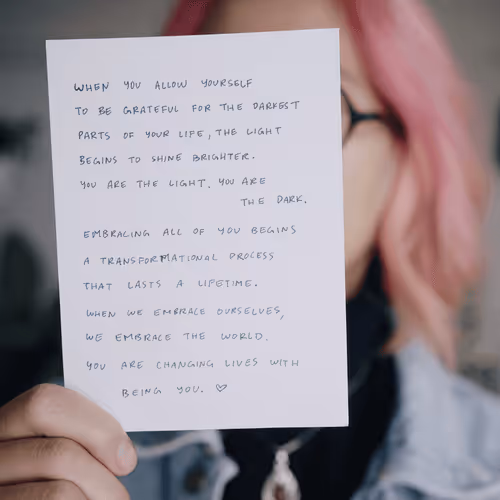 WHEN YOU ALLOW YOURSELF
TO BE GRATEFUL FOR THE DARKEST
PARTS OF YOUR LIFE, THE LIGHT
BEGINS TO SHINE BRIGHTER.
YOU ARE THE LIGHT. YOU ARE
THE DARK.
EMBRACING ALL OF YOU BEGINS
A TRANSFORMATIONAL PROCESS
THAT LASTS A LIFETIME.
WHEN WE EMBRACE OURSELVES,
WE EMBRACE THE WORLD.
YOU ARE CHANGING LIVES WITH
BEING YOU. ♡